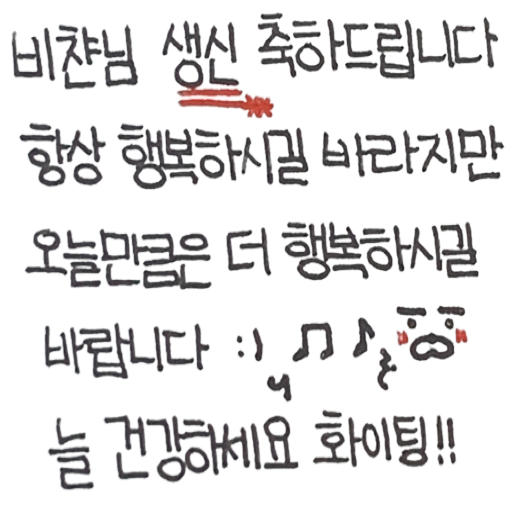 비챤님 생신 축하드립니다
항상 행복하시길 바라지만
오늘만큼은 더 행복하시길
바랍니다 :)
늘 건강하세요 화이팅!!